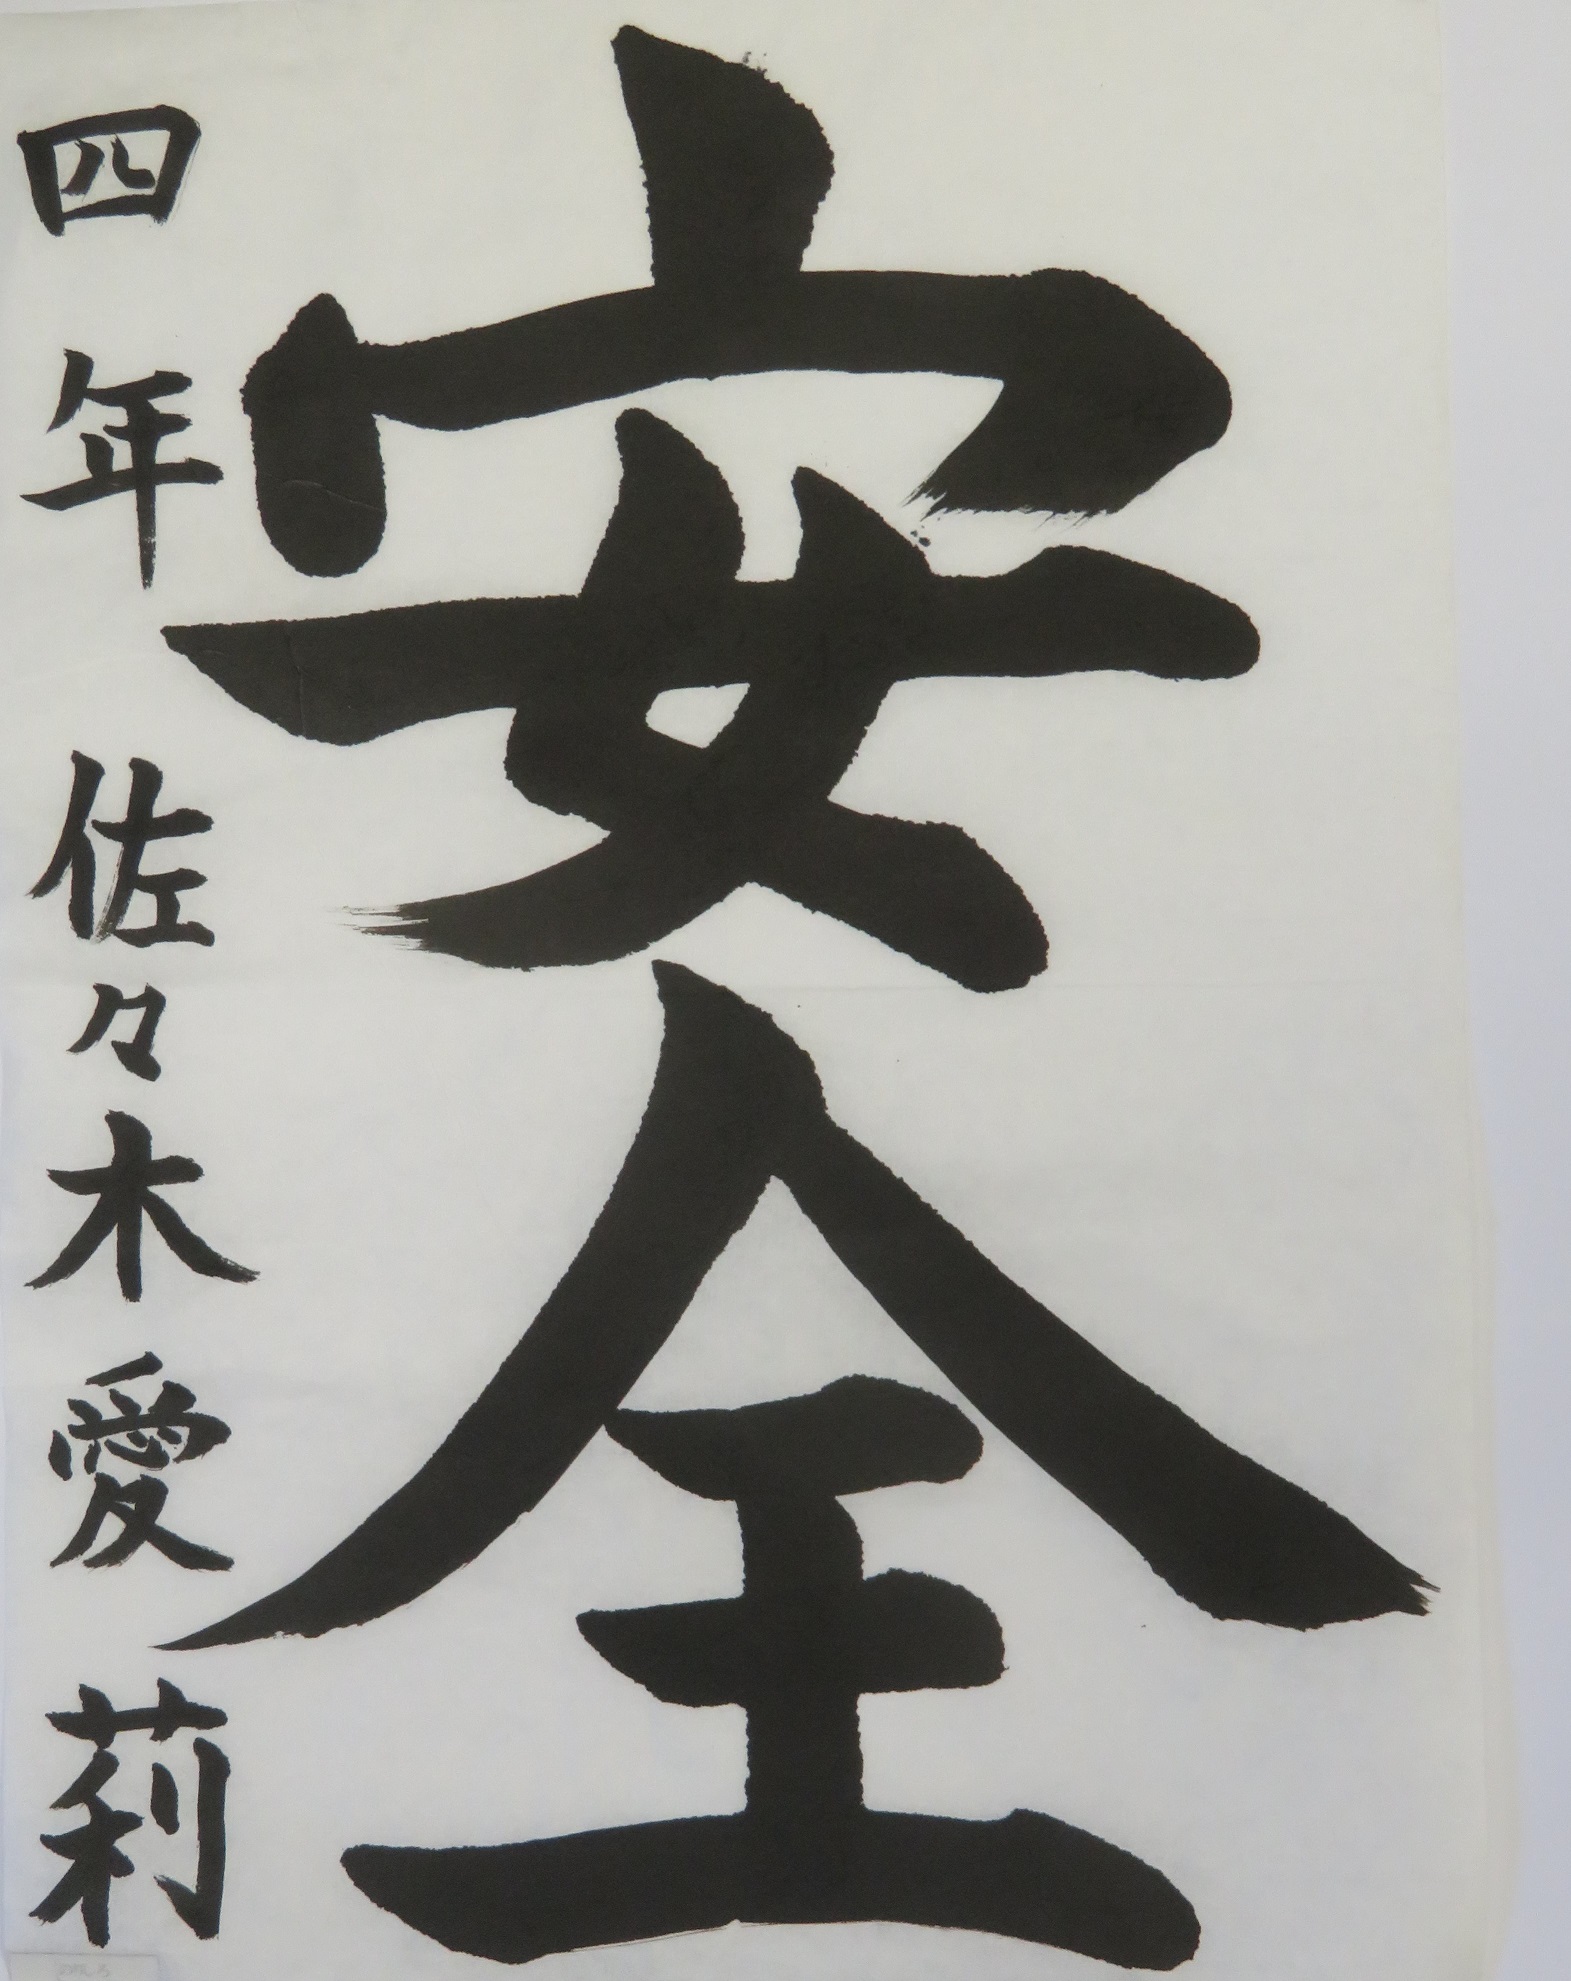 安全
四年 佐々木愛莉